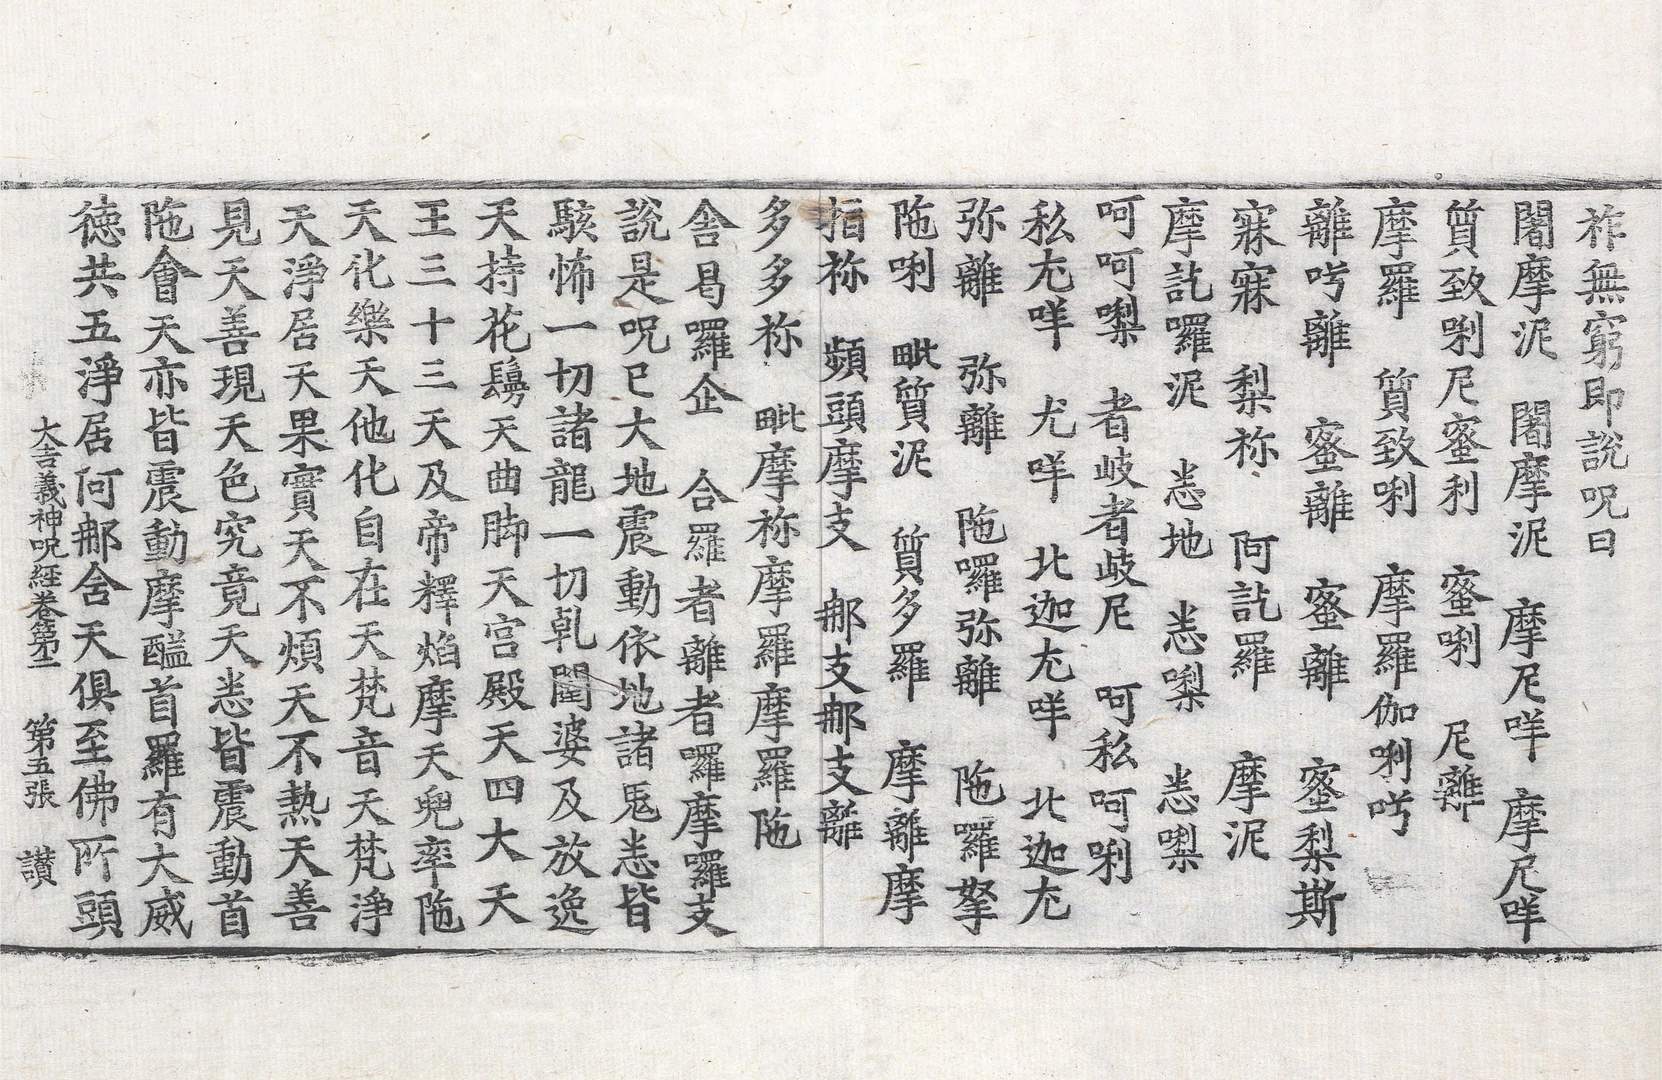 祚無窮即說呪曰
闍摩泥 闍摩泥 摩尼哶 摩尼哶
質致唎尼蜜利 蜜唎 尼離
摩羅 質致唎 摩羅伽唎吁
離吁離 蜜離 蜜離 蜜梨斯
寐寐 梨祢 阿訖羅 摩泥
摩訖囉泥 恙地 恙㗚 恙㗚
呵呵㗚 者岐者岐尼 呵私呵唎
私尣哶 尣哶 北迦尣哶 北迦尣
弥離 弥離 陁囉弥離 陁羅拏
陁唎 毗質泥 質多羅 摩離摩
指祢 頻頭摩支 郍支郍支離
多多祢 毗摩祢摩羅摩羅陁
舎曷囉企 合羅者離者囉摩囉支
說是呪已大地震動依地諸鬼恙皆
駭怖一切諸龍一切乹闥婆及放逸
天持花鬘天曲脚天宮殿天四大天
王三十三天及帝釋焰摩天兜率陁
天化樂天他化自在天梵音天梵淨
天淨居天果實天不煩天不熱天善
見天善現天色究竟天恙皆震動首
陁會天亦皆震動摩醯首羅有大威
徳共五淨居何郍舎天俱至佛所頭
大吉義神呪経卷第二 第五張 讃